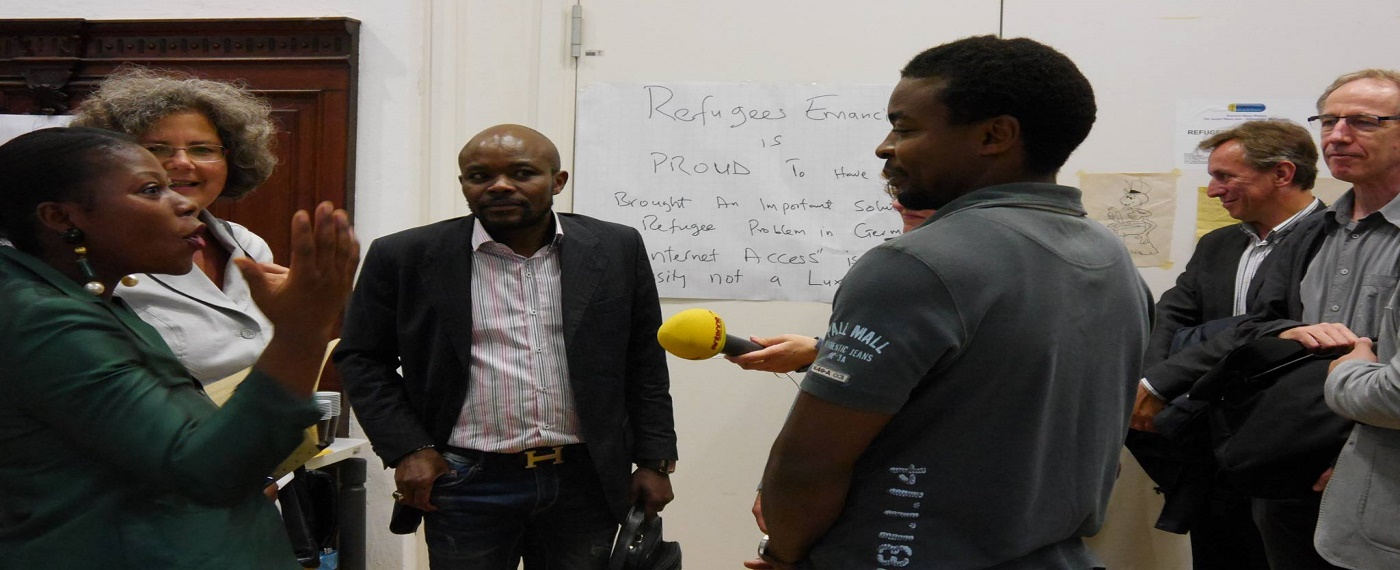 Refugees Emanci
is
PROUD To Have
Brought An Important Solu
Refugee Problem in Germ
nternet Access" is
sity not a Lux
REFUG
ALL MALL
ESTIC JEANS